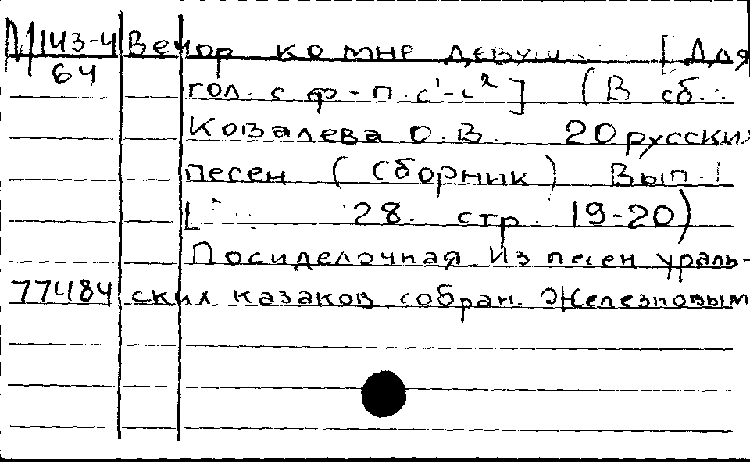 М 143-4 Вечор ко мне девуш [Для
64
гол. с ф-п. c¹-c²] (В сб.:
Ковалева О.В. 20 русских
песен (Сборник) Вып. I
28. стр. 19-20)
Посиделочная Из песен ураль-
77484 ских казаков собран. Железновым